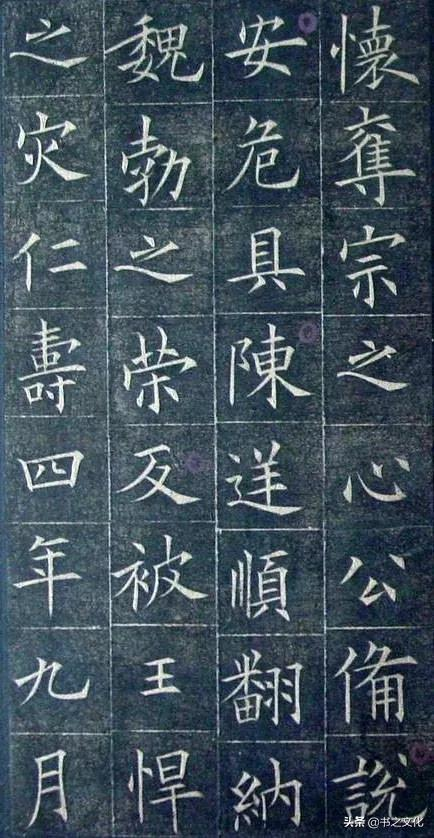 懷奪宗之心公備說
安危具陳逆順翻納
魏勃之荣反被王悍
之灾仁壽四年九月
头条 @书之文化